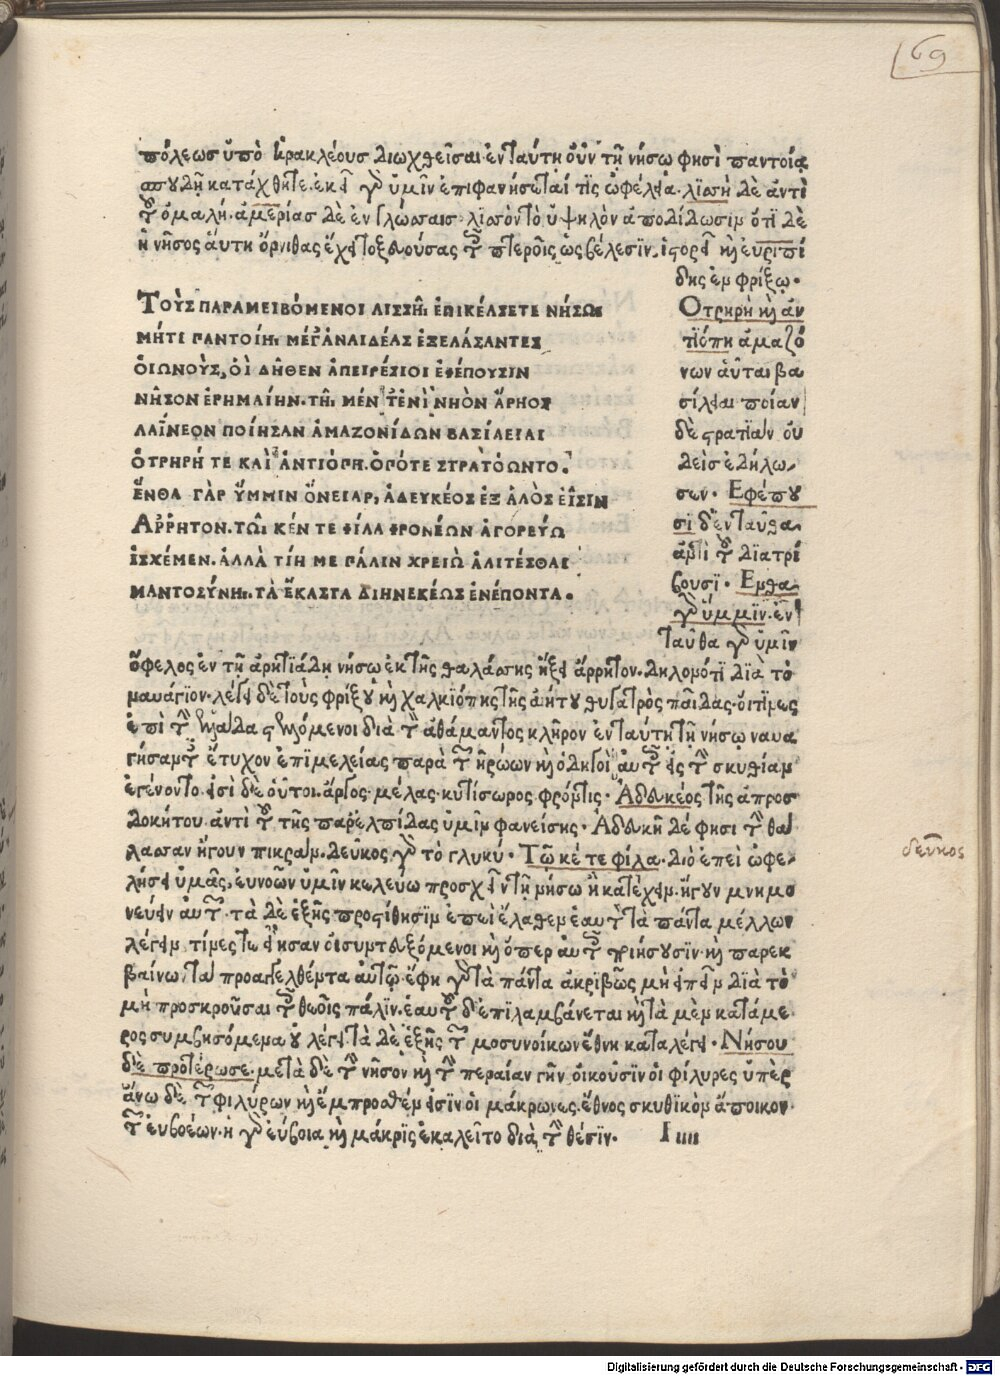 69
πόλεωσ ὑπὸ ἡρακλέουσ διωχθεῖσαι ἐν ταύτη οὖν τῆ νήσω φησὶ παντοία
σπουδῆ κατάχθητε. ἐκεῖ γὰρ ὑμῖν ἐπιφανήσεταί τις ὠφέλεια. λισσὴ δὲ ἀντὶ
τοῦ ὁμαλή. ἀμερίασ δὲ ἐν γλώσσαισ λισσὸν τὸ ὑψηλὸν ἀποδίδωσιν ὅτι δὲ
ἡ νῆσος αὕτη ὄρνιθας ἔχει τοξευούσας τοῖς πτεροῖς ὡς βέλεσιν. ἱστορεῖ καὶ εὐριπί
δης ἐν φρίξω.
ΤΟῪΣ ΠΑΡΑΜΕΙΒΌΜΕΝΟΙ ΛΙΣΣΗ͂Ι ἘΠΙΚΈΛΣΕΤΕ ΝΉΣΩΙ
ΜΉΤΙ ΠΑΝΤΟΊΗΙ, ΜΕΓ' ἈΝΑΙΔΈΑΣ ἘΞΕΛΆΣΑΝΤΕΣ
ΟἸΩΝΟῪΣ, ΟἹ ΔΗ͂ΘΕΝ ἈΠΕΙΡΈΣΙΟΙ ἘΦΈΠΟΥΣΙΝ
ΝΗ͂ΣΟΝ ἘΡΗΜΑΊΗΝ. ΤΗ͂Ι ΜΈΝ Τ' ἘΝῚ ΝΗῸΝ ἌΡΗΟΣ
ΛΑΪ́ΝΕΟΝ ΠΟΊΗΣΑΝ ἈΜΑΖΟΝΊΔΩΝ ΒΑΣΊΛΕΙΑΙ
ὈΤΡΗΡΉ ΤΕ ΚΑῚ ἈΝΤΙΌΠΗ. ὉΠΌΤΕ ΣΤΡΑΤΌΩΝΤΟ.
ἜΝΘΑ ΓᾺΡ ὝΜΜΙΝ ὌΝΕΙΑΡ, ἈΔΕΥΚΈΟΣ ἘΞ ἉΛῸΣ ΕἾΣΙΝ
ἌΡΡΗΤΟΝ. ΤΩ͂Ι ΚΈΝ ΤΕ ΦΊΛΑ ΦΡΟΝΈΩΝ ἈΓΟΡΕΎΩ
ἸΣΧΈΜΕΝ. ἈΛΛᾺ ΤΊΗ ΜΕ ΠΆΛΙΝ ΧΡΕΙῺ ἈΛΙΤΈΣΘΑΙ
ΜΑΝΤΟΣΎΝΗΙ. ΤᾺ ἝΚΑΣΤΑ ΔΙΗΝΕΚΈΩΣ ἘΝΈΠΟΝΤΑ.
Ὀτρηρὴ καὶ ἀν
τιόπη ἀμαζό
νων αὗται βα
σίλειαι ποίαν
δὲ στρατείαν οὐ
δεὶσ ἐδήλω
σεν. Ἐφέπου
σι δ' ἐνταῦθα
ἀντὶ τοῦ διατρί
βουσι. Ἔνθα
γὰρ ὕμμιν. ἐν
ταῦθα γὰρ ὑμῖν
ὄφελος ἐν τῆ ἀρητιάδη νήσω ἐκ τῆς θαλάσσης ἥξει ἄρρητον. δηλονότι διὰ τὸ
ναυάγιον. λέγει δὲ τοὺς φρίξου καὶ χαλκιόπης τῆς αἰήτου θυγατρὸς παῖδας. οἵτινες
ἐπὶ τὴν ἑλλάδα στελλόμενοι διὰ τὸν ἀθάμαντος κλῆρον ἐν ταύτη τῆ νήσω ναυα
γήσαντες ἔτυχον ἐπιμελείας παρὰ τῶν ἡρώων καὶ ὁδηγοὶ αὐτοῖς εἰς τὴν σκυθίαν
ἐγένοντο. εἰσὶ δὲ οὗτοι. ἄργος. μέλας. κυτίσωρος φρόντις. Ἀδευκέος τῆς ἀπροσ
δοκήτου. ἀντὶ τοῦ τῆς παρ' ἐλπίδας ὑμῖν φανείσης. Ἀδευκῆ δέ φησι τὴν θά
λασσαν ἤγουν πικράν. δεῦκος γὰρ τὸ γλυκύ. Τῶ κέ τε φίλα. διὸ ἐπεὶ ὠφε
λήσει ὑμᾶς, εὐνοῶν ὑμῖν κελεύω προσχεῖν τῆ νήσω ἢ κατέχειν. ἤγουν μνημο
νεύειν αὐτῶν. τὰ δὲ ἑξῆς προστίθησιν ἐπεὶ ἔλαθεν ἑαυτὸν τὰ πάντα μέλλων
λέγειν. τίνες τε ἦσαν οἱ συντευξόμενοι καὶ ὅπερ αὐτοῖς ποιήσουσιν. καὶ παρεκ
βαίνω τὰ προαγγελθέντα αὐτῶ. ἔφη γὰρ τὰ πάντα ἀκριβῶς μὴ εἰπεῖν διὰ τὸ
μὴ προσκροῦσαι τοῖς θεοῖς πάλιν. ἑαυτοῦ δ' ἐπιλαμβάνεται καὶ τὰ μὲν κατὰ μέ
ρος συμβησόμενα οὐ λέγει. τὰ δὲ ἑξῆς τῶν μοσυνοίκων ἔθνη καταλέγει. Νήσου
δὲ προτέρωσε. μετὰ δὲ τὴν νῆσον καὶ τὴν περαίαν γῆν οἰκοῦσιν οἱ φίλυρες ὑπὲρ
ἄνω δὲ τῶν φιλύρων καὶ ἔμπροσθέν εἰσιν οἱ μάκρωνες. ἔθνος σκυθικὸν ἄποικον
τῶν εὐβοέων. ἡ γὰρ εὔβοια καὶ μάκρις ἐκαλεῖτο διὰ τὴν θέσιν. Ι iiii
δεῦκος
Digitalisierung gefördert durch die Deutsche Forschungsgemeinschaft - DFG